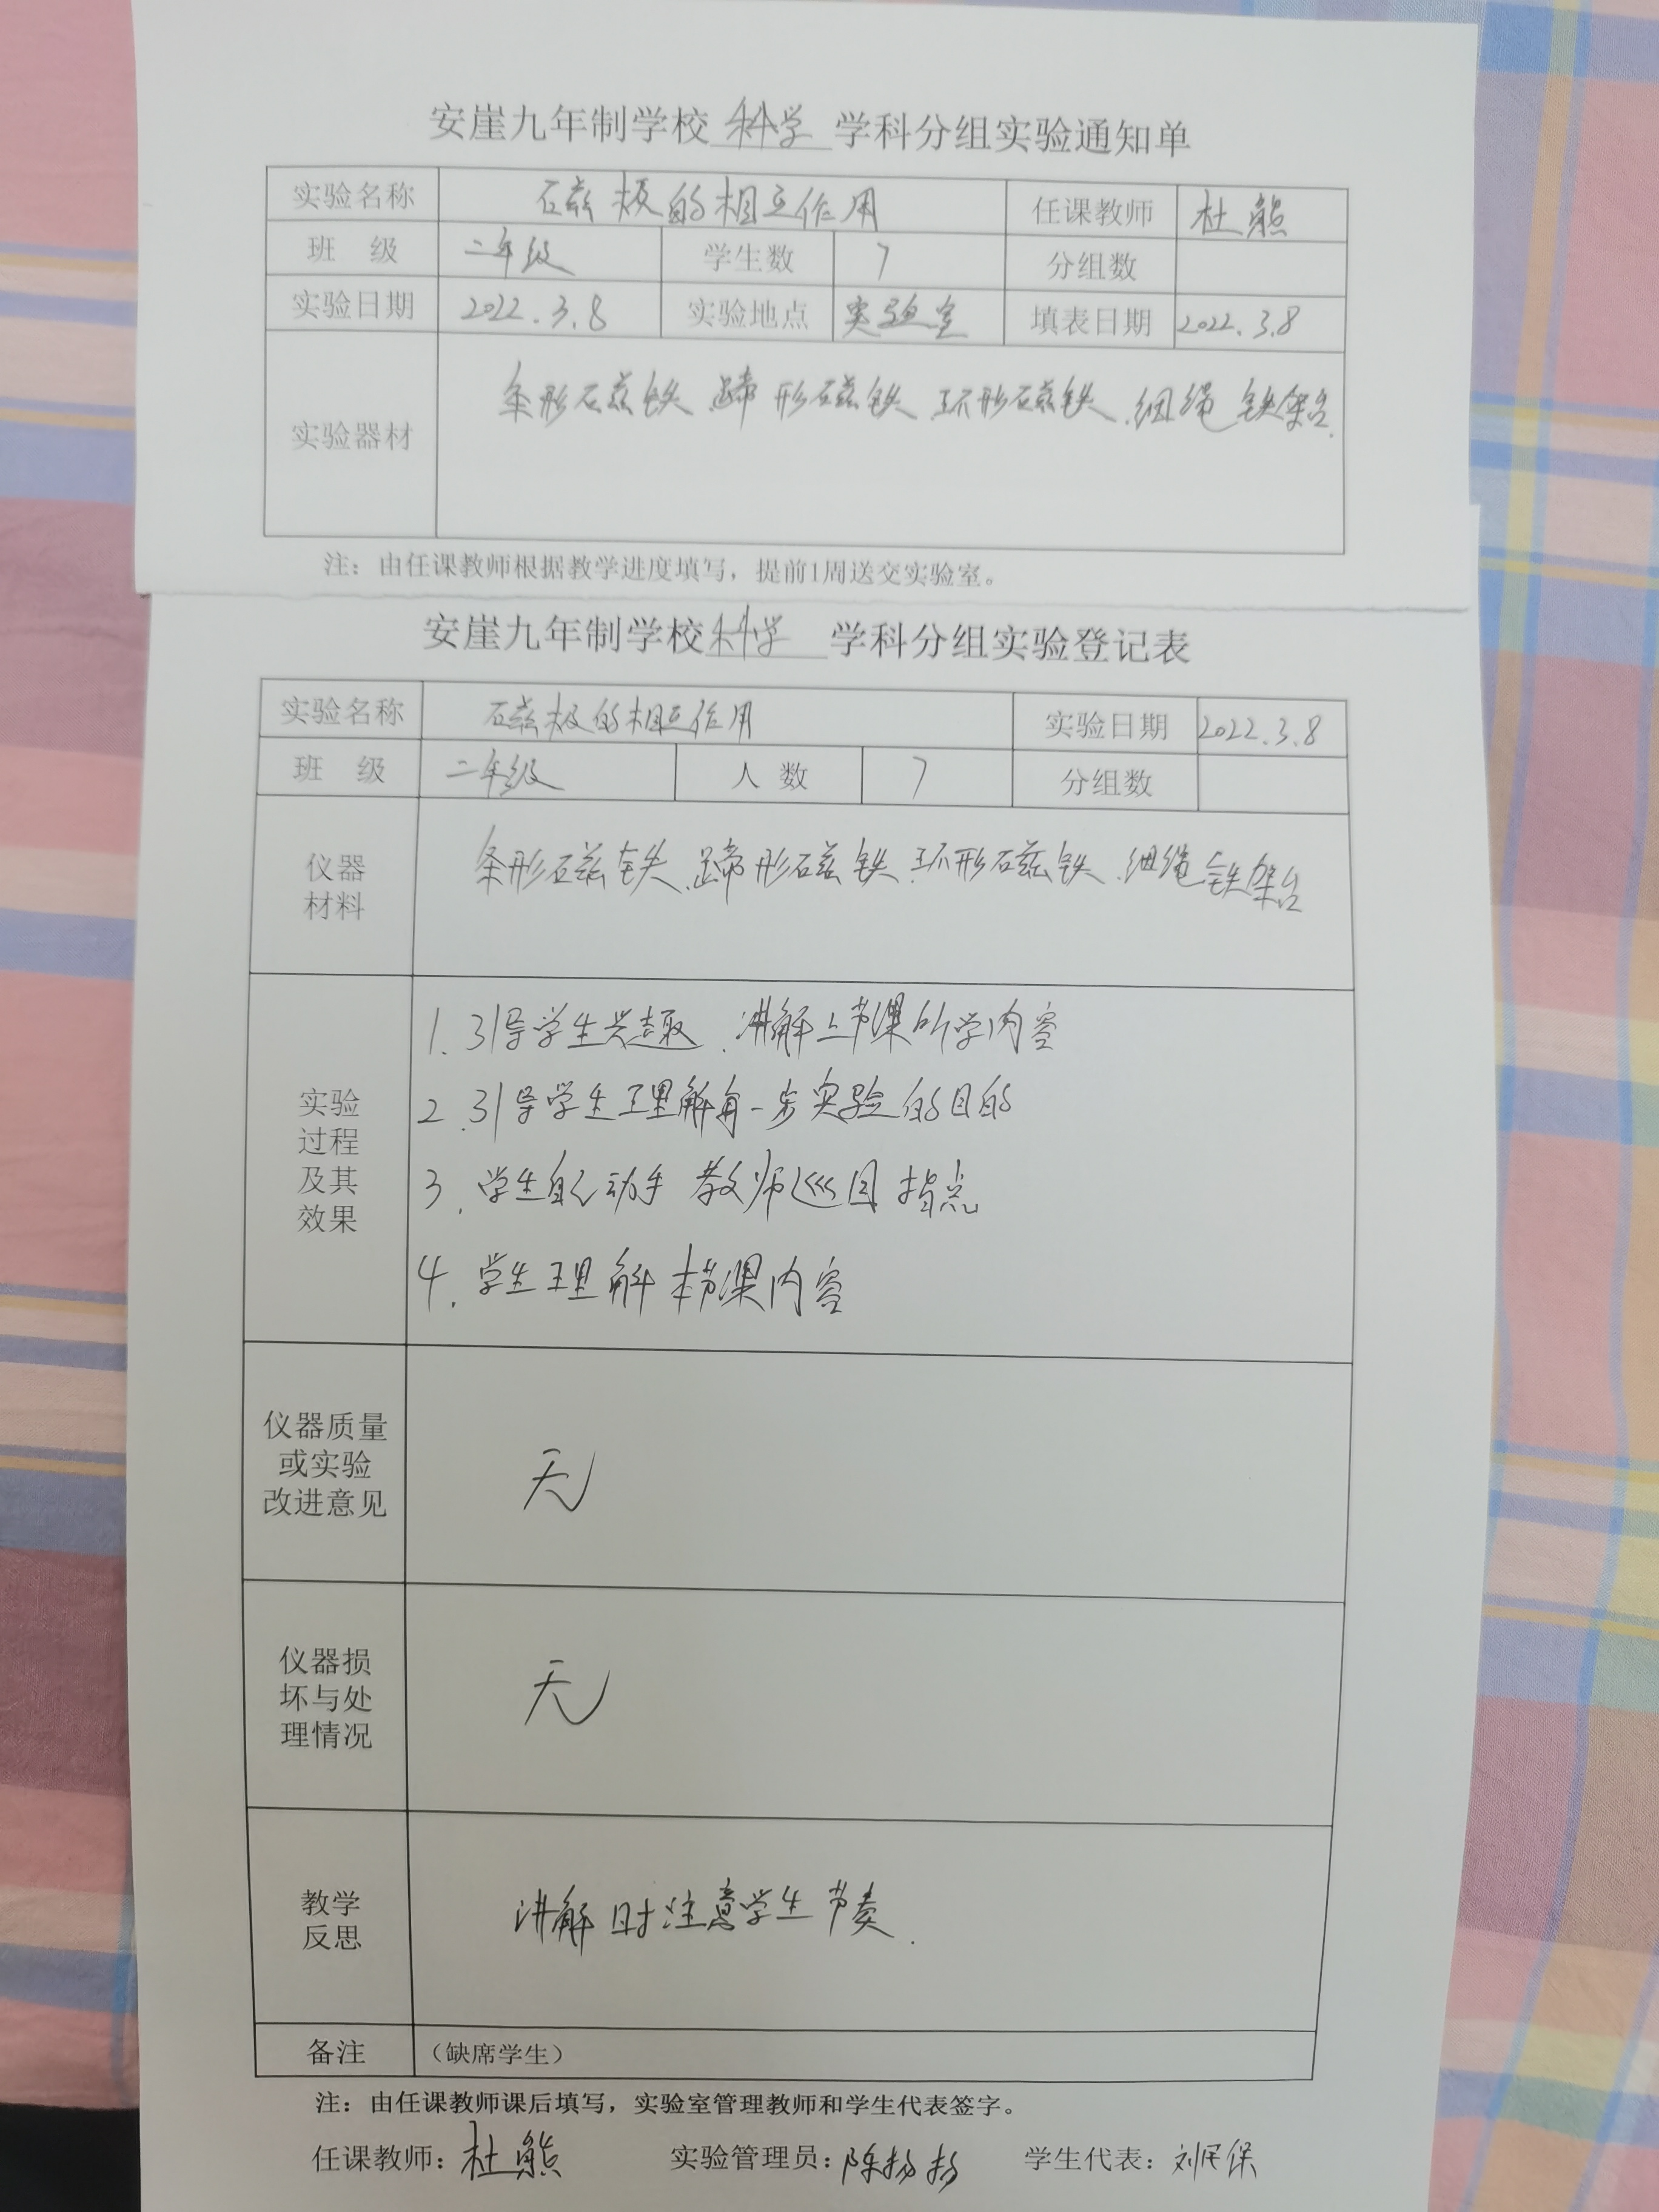 安崖九年制学校 科学 学科分组实验通知单
实验名称 磁极的相互作用 任课教师 杜熊
班 级 二年级 学生数 7 分组数
实验日期 2022.3.8 实验地点 实验室 填表日期 2022.3.8
实验器材 条形磁铁、蹄形磁铁、环形磁铁、细绳 铁架台.
注：由任课教师根据教学进度填写，提前1周送交实验室。
安崖九年制学校 科学 学科分组实验登记表
实验名称 磁极的相互作用 实验日期 2022.3.8
班 级 二年级 人 数 7 分组数
仪器
材料
条形磁铁、蹄形磁铁、环形磁铁、细绳 铁架台
实验
过程
及其
效果
1.引导学生兴趣、讲解上节课所学内容
2.引导学生理解每一步实验的目的
3.学生自己动手 教师巡回指点
4.学生理解本节课内容
仪器质量
或实验
改进意见
无
仪器损
坏与处
理情况
无
教学
反思
讲解时注意学生节奏.
备注 （缺席学生）
注：由任课教师课后填写，实验室管理教师和学生代表签字。
任课教师：杜熊 实验管理员：陈扬扬 学生代表：刘民保